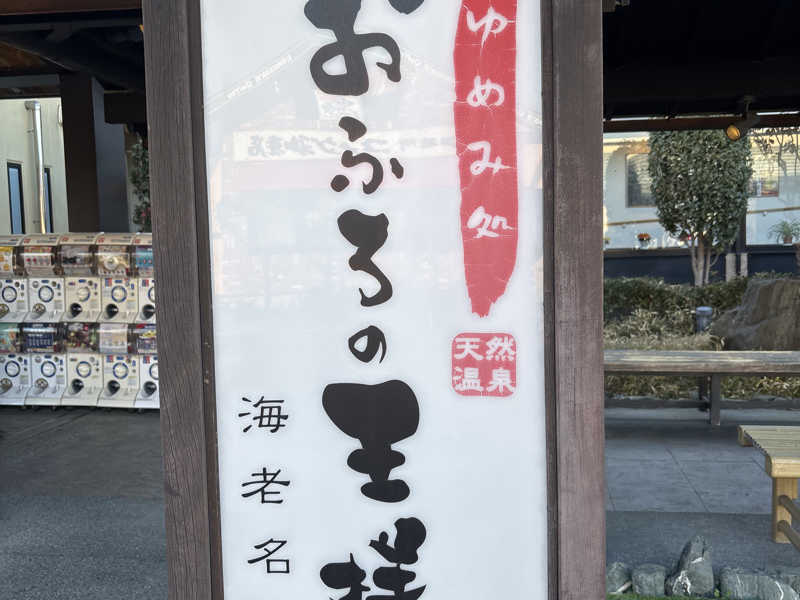 ゆめみ処
おふろの王様
天然
温泉
海老名